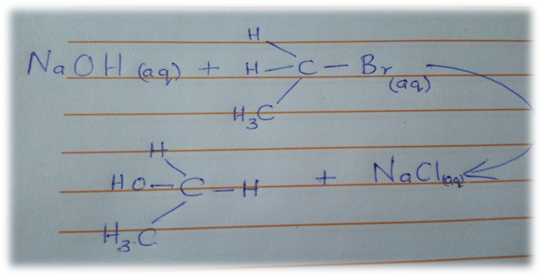 H
NaOH (aq) + H — C — Br (aq)
H₃C
H
HO — C — H + NaCl (aq)
H₃C